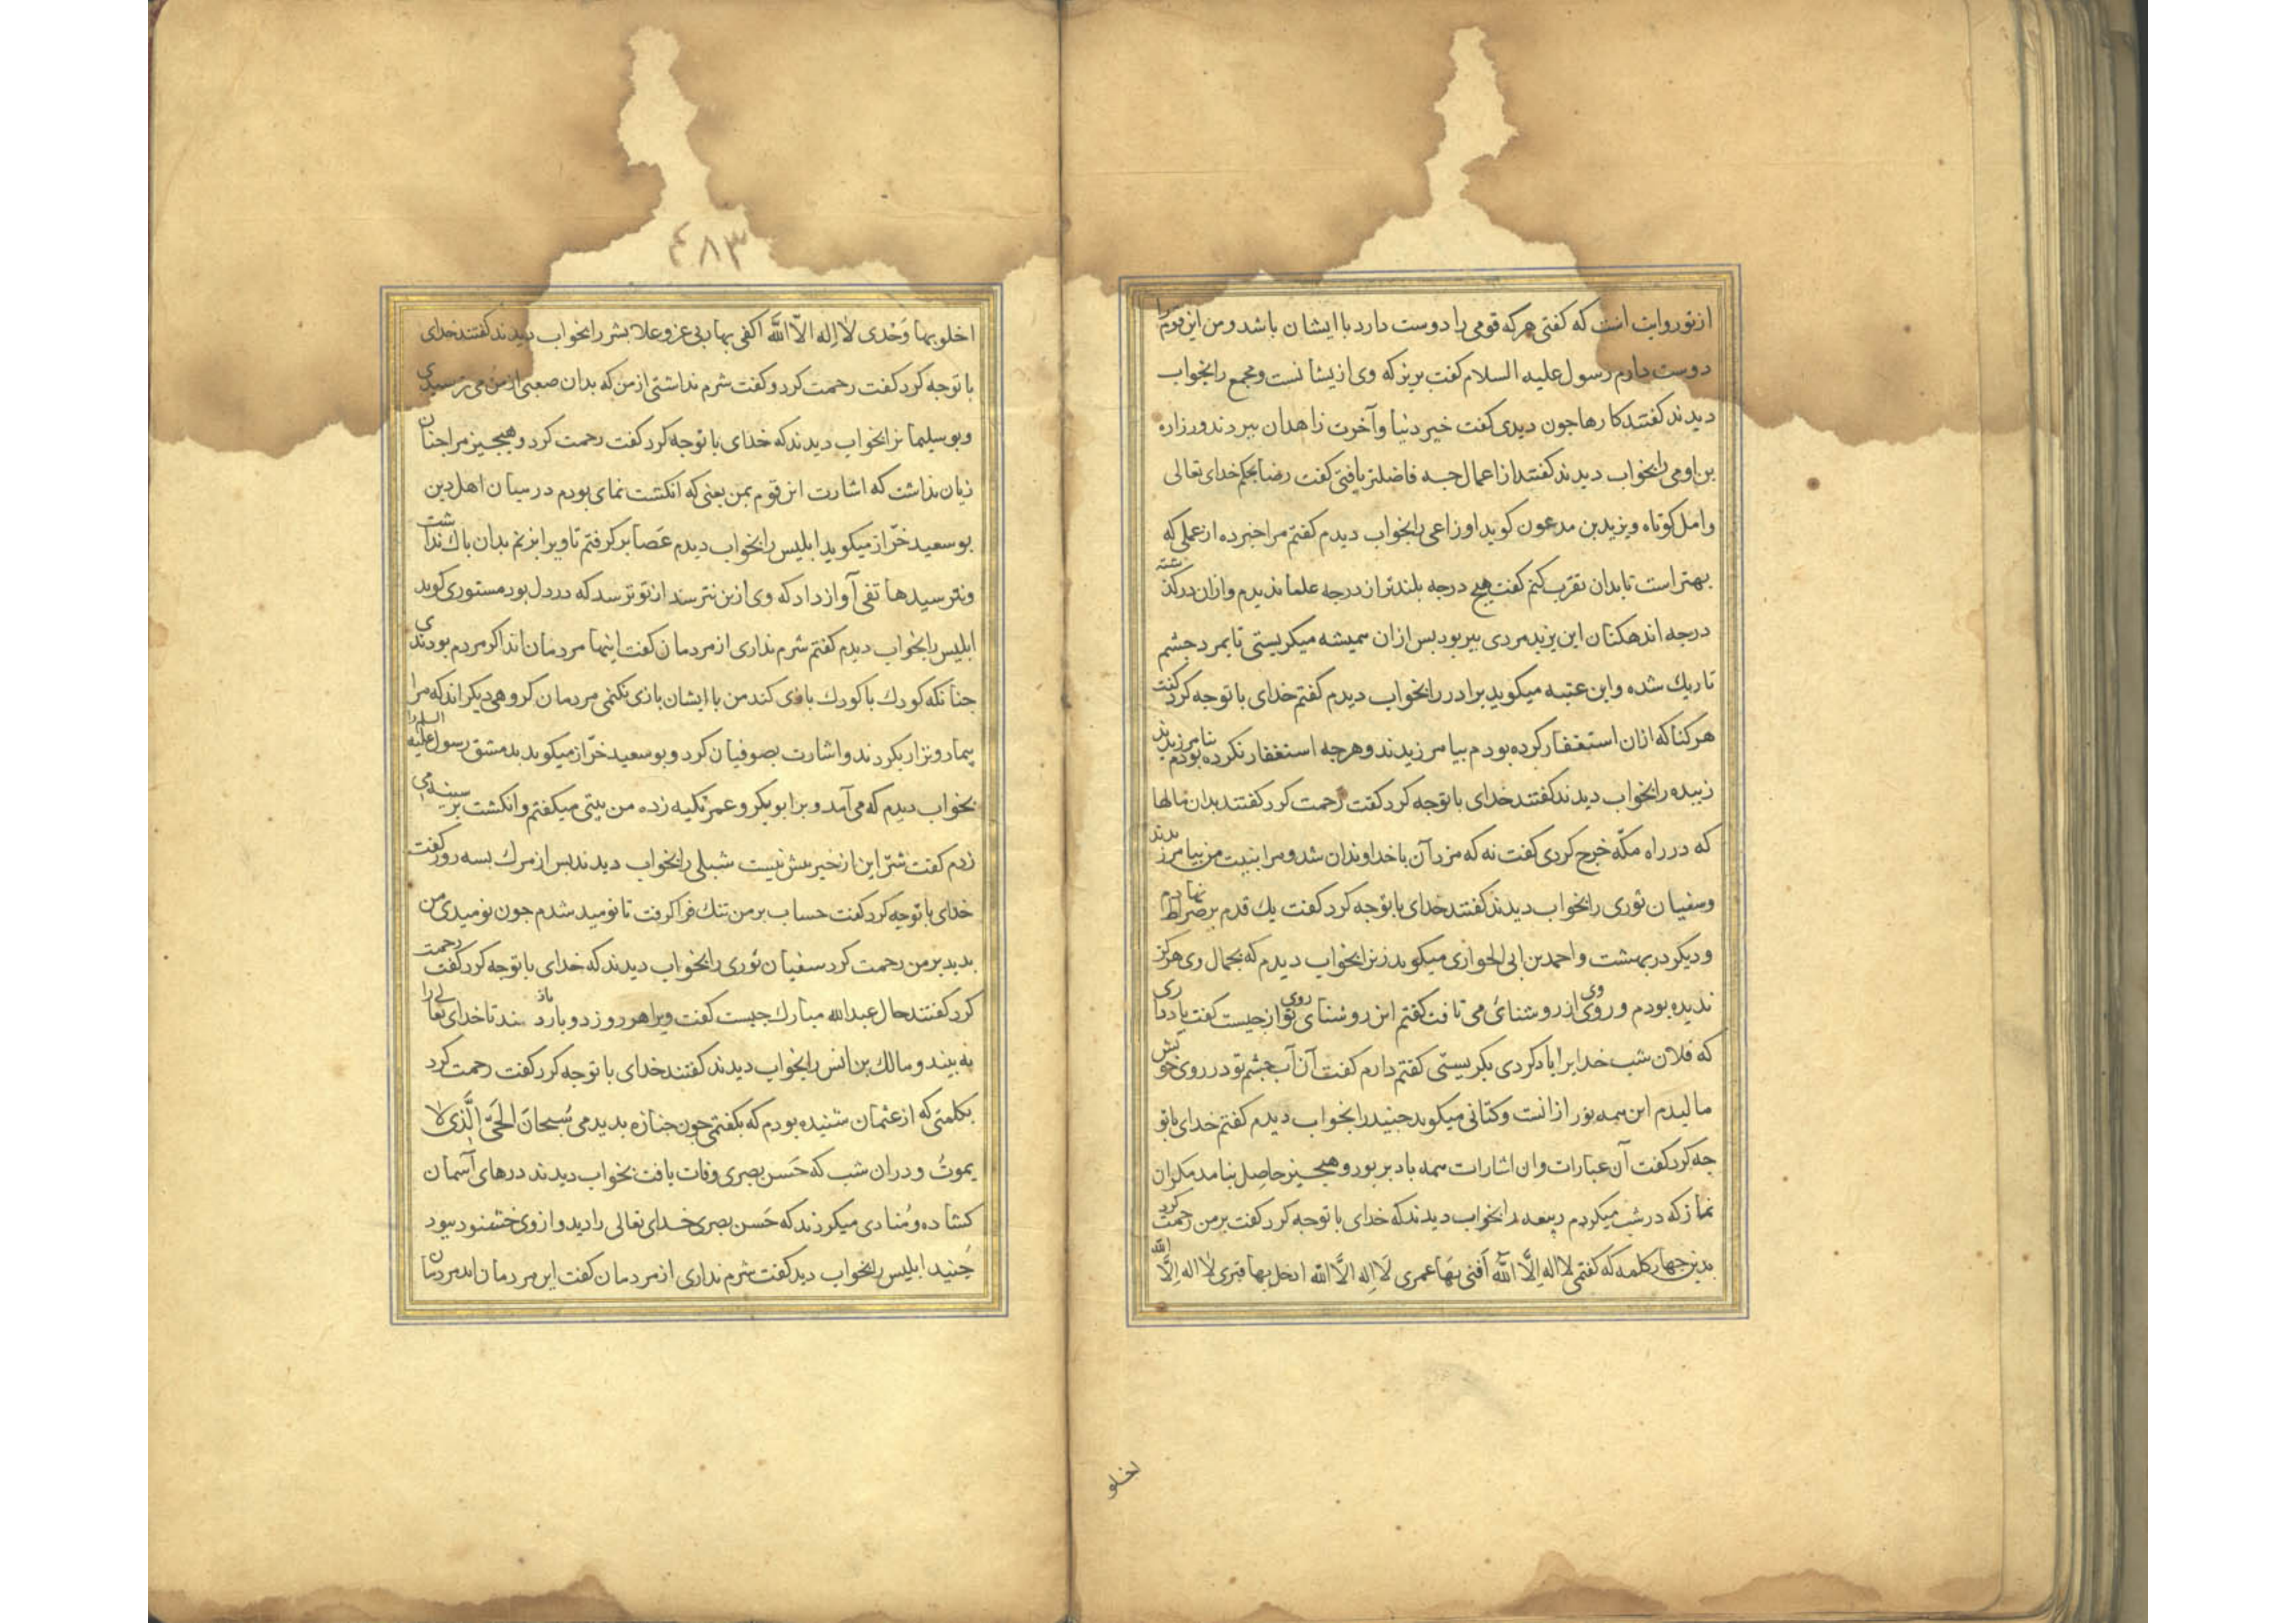 از تو روایت است که کفتی هرکه قومی را دوست دارد با ایشان باشد ومن این قوم را
دوست دارم رسول علیه السلام کفت بریز که وی ازیشانست ومجمع را بخواب
دیدند کفتند کارها جون دیدی کفت خیر دنیا وآخرت زاهدان ببردند وزراره
بن اوفی را بخواب دیدند کفتند از اعمال جه فاضلتر یافتی کفت رضا بحکم خدای تعالی
وامل کوتاه ویزید بن مدعون کوید اوزاعی را بخواب دیدم کفتم مرا خبر ده از عملی که
بهتر است تا بدان تقرب کنم کفت هیچ درجه بلندتر از درجه علما ندیدم وازان درکذشته
درجه اندهکنان این یزید مردی پیر بود بس ازان همیشه میکریستی تا بمرد جشم
تاریک شده وابن عتبه میکوید برادر را بخواب دیدم کفتم خدای با تو جه کرد کفت
هر کناه که ازان استغفار کرده بودم بیامرزیدند وهرجه استغفار نکرده بودم نیامرزیدند
زبیده را بخواب دیدند کفتند خدای با تو جه کرد کفت رحمت کرد کفتند بدان مالها
که در راه مکّه خرج کردی کفت نه که مزد آن با خداوندان شد ومرا بنیت من بیامرزیدند
وسفیان ثوری را بخواب دیدند کفتند خدای با تو جه کرد کفت یک قدم بر صراط نهادم
ودیکر در بهشت واحمد بن ابی الحواری میکوید زنی را بخواب دیدم که بجمال وی هرکز
ندیده بودم وروی وی از روشنائی می تافت کفتم این روشنای روی تو از جیست کفت یاد داری
که فلان شب خدایرا یاد کردی بکریستی کفتم دارم کفت آن آب جشم تو در روی خویش
مالیدم این همه نور ازانست وکتانی میکوید جنید را بخواب دیدم کفتم خدای با تو
جه کرد کفت آن عبارات وان اشارات همه باد ببرد وهیجیز حاصل نیامد مکر ان
نماز که در شب میکردم زبیده را بخواب دیدند که خدای با تو جه کرد کفت بر من رحمت کرد
بدین جهار کلمه که کفتمی لا اله اِلّا اللّه اَفنی بِهَا عمری لَا اِله الّا اللّه ادخل بها قبری لَا اله اِلّا اللّه
اخلو
٤٨٣
اخلو بها وَحْدی لَا اِله الاّ اللّه اکفی بها ربی عز وعلا بشر را بخواب دیدند کفتند خدای
با تو جه کرد کفت رحمت کرد وکفت شرم نداشتی از من که بدان صعبی از من می ترسیدی
وبو سلیمانرا بخواب دیدند که خدای با تو جه کرد کفت رحمت کرد وهیجیز مرا جنان
زیان نداشت که اشارت این قوم بمن یعنی که انکشت نمای بودم در میان اهل دین
بو سعید خرّاز میکوید ابلیس را بخواب دیدم عَصا بر کرفتم تا ویرا بزنم بدان باک نداشت
ونترسید هاتفی آواز داد که وی ازین نترسد از تو ترسد که در دل بود مستوری کوید
ابلیس را بخواب دیدم کفتم شرم نداری از مردمان کفت اینها مردمان اند اکر مردم بودندی
جنانکه کودک با کودک بازی کند من با ایشان بازی نکنمی مردمان کروهی دیکر اند که مرا
بیمار ونزار بکردند واشارت بصوفیان کرد وبو سعید خرّاز میکوید بدمشق رسول علیه السلم را
بخواب دیدم که می آمد وبر ابوبکر وعمر تکیه زده من بیتی میکفتم وانکشت بر سینه می
زدم کفت شرّ این از خیرش بیش نیست شبلی را بخواب دیدند بس از مرک بسه روز کفت
خدای با تو جه کرد کفت حساب بر من تنک فرا کرفت تا نومید شدم جون نومیدی من
بدید بر من رحمت کرد سفیان ثوری را بخواب دیدند که خدای با تو جه کرد کفت رحمت
کرد کفتند حال عبدالله مبارک جیست کفت ویرا هر روز دو بار بار دهند تا خدای تعالی را
به بیند ومالک بن انس را بخواب دیدند کفتند خدای با تو جه کرد کفت رحمت کرد
بکلمتی که از عثمان شنیده بودم که بکفتمی جون جنازه بدیدمی سُبحانَ الحَیّ الَّذی لا
یموتُ ودران شب که حَسن بصری وفات یافت بخواب دیدند درهای آسمان
کشاده ومُنادی میکردند که حَسن بصری خدای تعالی را دید واز وی خشنود بود
جُنید ابلیس را بخواب دید کفت شرم نداری از مردمان کفت این مردمان اند مردمان